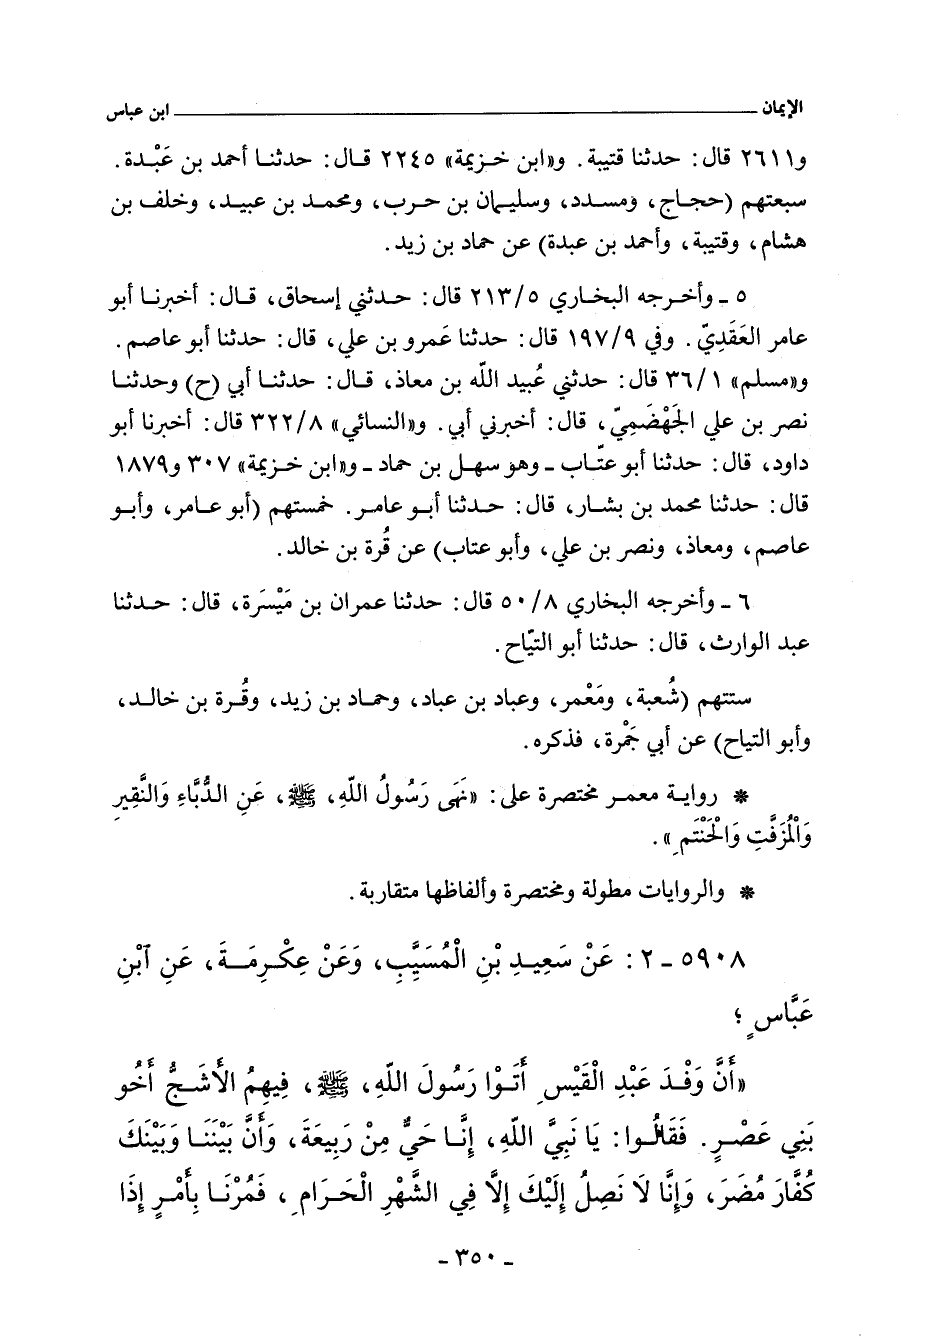 الإيمان ابن عباس
و٢٦١١ قال: حدثنا قتيبة. و«ابن خزيمة» ٢٢٤٥ قال: حدثنا أحمد بن عَبْدة.
سبعتهم (حجاج، ومسدد، وسليمان بن حرب، ومحمد بن عبيد، وخلف بن
هشام، وقتيبة، وأحمد بن عبدة) عن حماد بن زيد.
٥ ـ وأخرجه البخاري ٢١٣/٥ قال: حدثني إسحاق، قال: أخبرنا أبو
عامر العَقَدِيّ. وفي ١٩٧/٩ قال: حدثنا عَمرو بن علي، قال: حدثنا أبو عاصم.
و«مسلم» ٣٦/١ قال: حدثني عُبيد الله بن معاذ، قال: حدثنا أبي (ح) وحدثنا
نصر بن علي الجَهْضَمِيّ، قال: أخبرني أبي. و«النسائي» ٣٢٢/٨ قال: أخبرنا أبو
داود، قال: حدثنا أبو عتّاب ـ وهو سهل بن حماد ـ و«ابن خزيمة» ٣٠٧ و١٨٧٩
قال: حدثنا محمد بن بشار، قال: حدثنا أبو عامر. خمستهم (أبو عامر، وأبو
عاصم، ومعاذ، ونصر بن علي، وأبو عتاب) عن قُرة بن خالد.
٦ ـ وأخرجه البخاري ٥٠/٨ قال: حدثنا عمران بن مَيْسَرة، قال: حدثنا
عبد الوارث، قال: حدثنا أبو التيّاح.
ستتهم (شُعبة، ومَعْمر، وعباد بن عباد، وحماد بن زيد، وقُرة بن خالد،
وأبو التياح) عن أبي جَمْرة، فذكره.
* رواية معمر مختصرة على: «نَهَى رَسُولُ اللهِ، ﷺ، عَنِ الدُّبَّاءِ وَالنَّقِيرِ
وَالْمُزَفَّتِ وَالْحَنْتَمِ».
* والروايات مطولة ومختصرة وألفاظها متقاربة.
٥٩٠٨ ـ ٢: عَنْ سَعِيدِ بْنِ الْمُسَيِّبِ، وَعَنْ عِكْرِمَةَ، عَنِ ٱبْنِ
عَبَّاسٍ؛
«أَنَّ وَفْدَ عَبْدِ الْقَيْسِ أَتَوْا رَسُولَ اللهِ، ﷺ، فِيهِمُ الأَشَجُّ أَخُو
بَنِي عَصْرٍ. فَقَالُوا: يَا نَبِيَّ اللهِ، إِنَّا حَيٌّ مِنْ رَبِيعَةَ، وَأَنَّ بَيْنَنَا وَبَيْنَكَ
كُفَّارَ مُضَرَ، وَإِنَّا لَا نَصِلُ إِلَيْكَ إِلَّا فِي الشَّهْرِ الْحَرَامِ، فَمُرْنَا بِأَمْرٍ إِذَا
ـ ٣٥٠ ـ